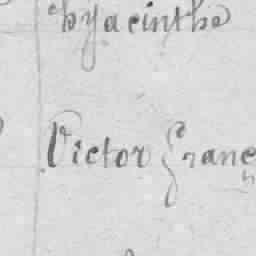 hyacinthe
Victor Franç